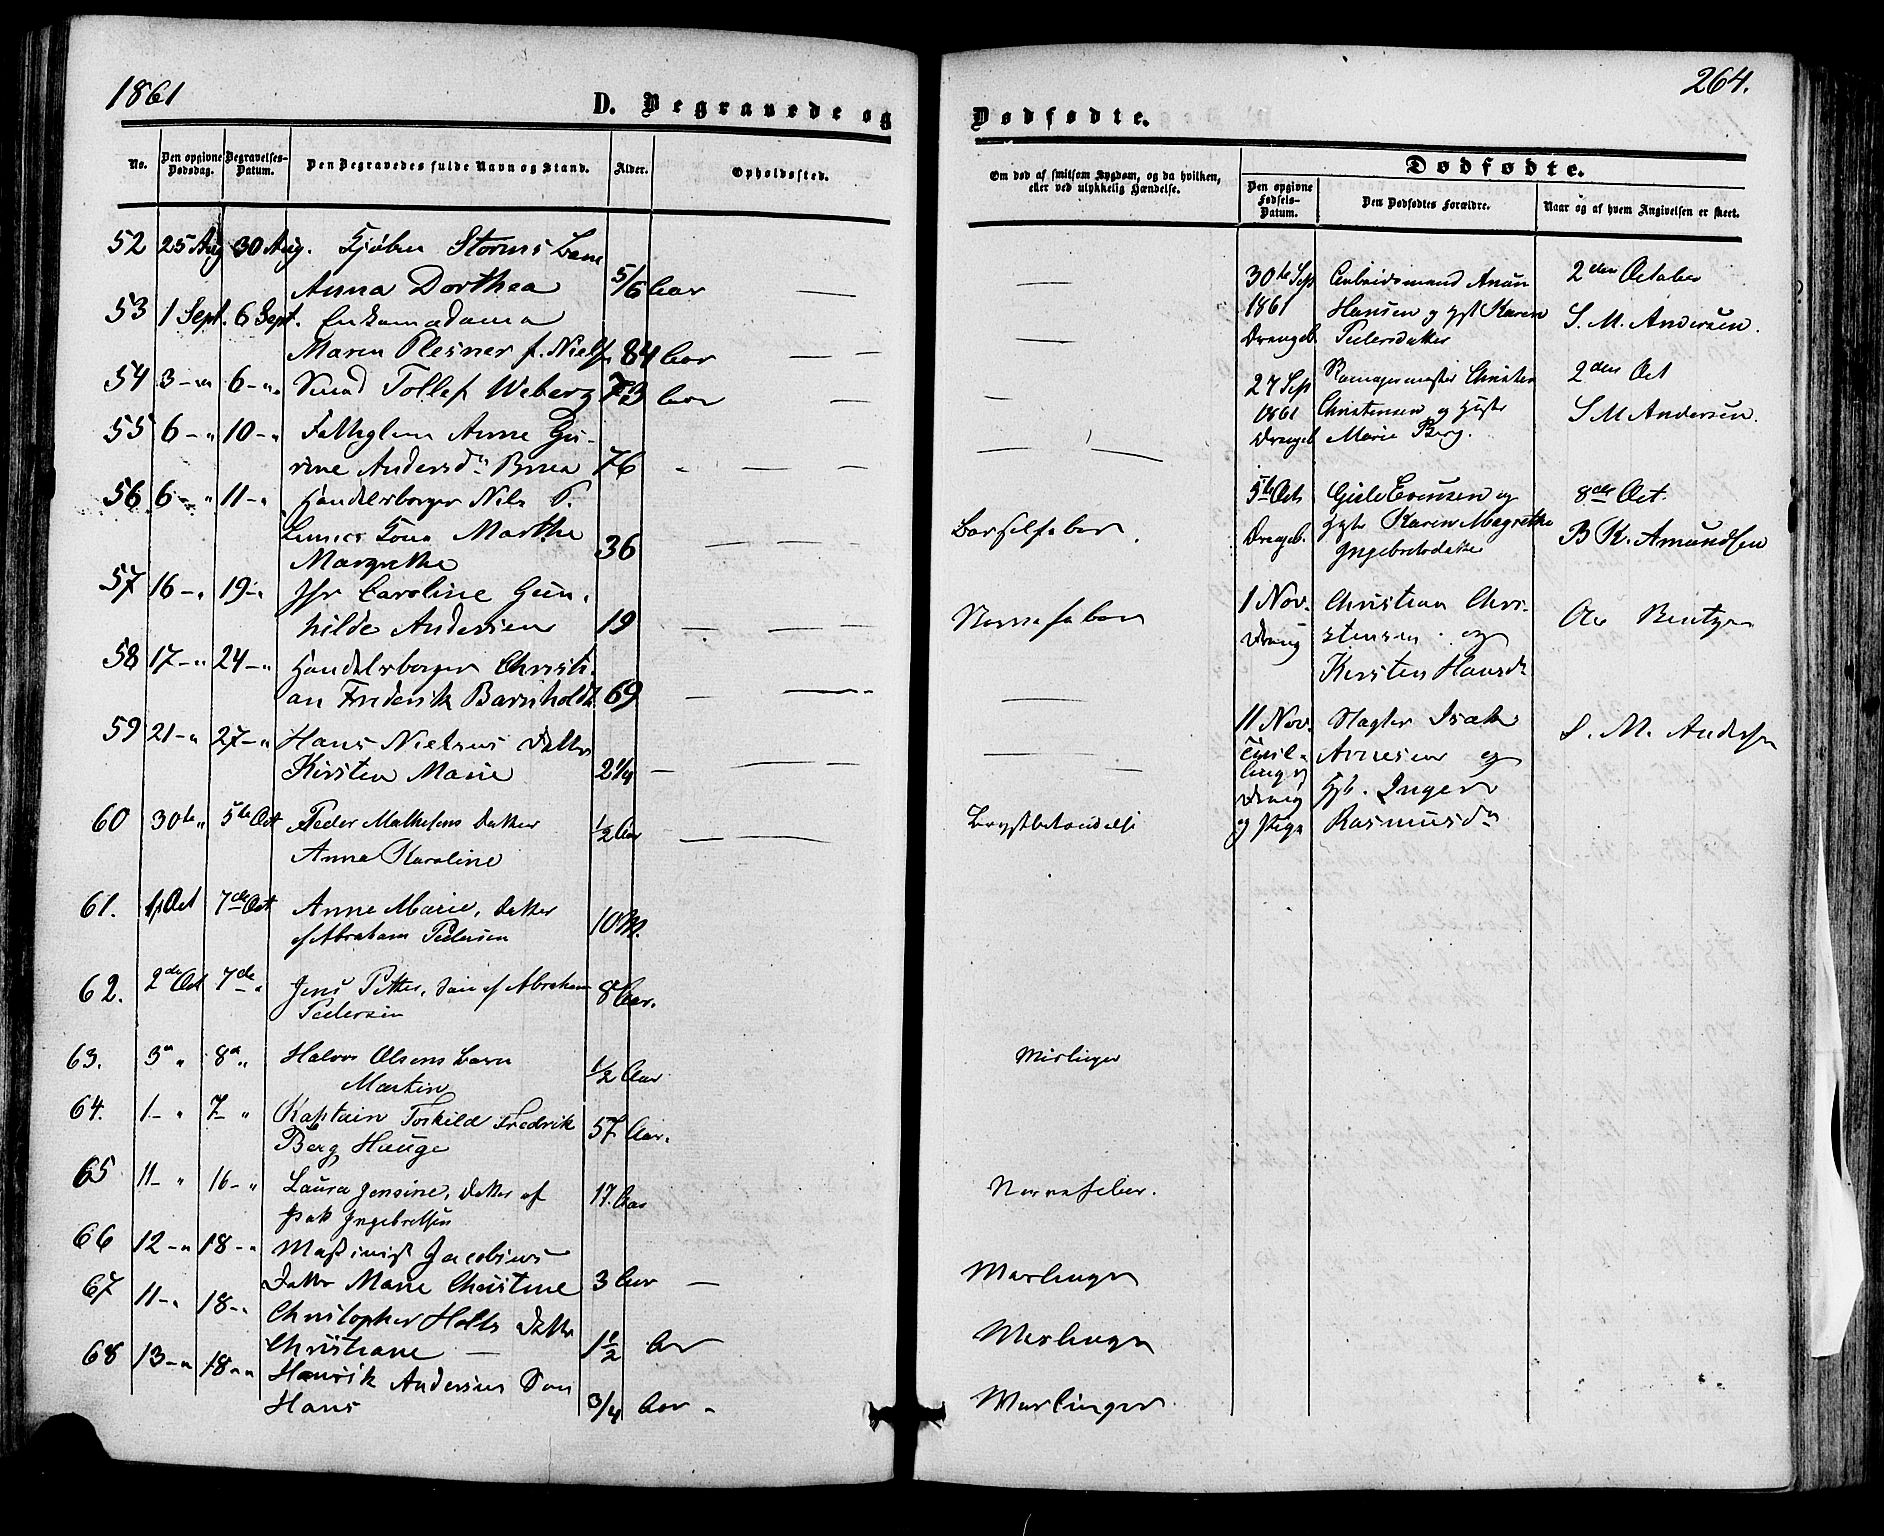 1861
D. Begravede og
No.
Den opgivne Dødsdag.
Begravelses-Datum.
Den Begravedes fulde Navn og Stand.
Alder.
Opholdssted.
52 25 Aug 30 Aug. Storms
Anna Dorthea 5/6 Aar
53 1 Sept. 6 Sept. Enkemadame
Maren Plesner f. Niels 84 Aar
54 3 - " 6 - " Tollef Weberg 73 Aar
55 6 - " 10 - " Anne Gu-
rine Andersd. 76
56 6 - " 11 - " Handelsborger Niels P.
Kone Marthe
Margrethe 36
57 16 - " 19 - " Jfr Caroline Gun-
hilde Andersen 19
58 17 - " 24 - " Handelsborger Christi-
an Frederik Barnholdt 69
59 21 - " 27 - " Hans Nielsens Datter
Kirsten Marie 2 1/4
60 30te " 5te Oct Peder Mathesens Datter 1/2 Aar
Anna Karoline
61. Oct 7de Oct Anne Marie, Datter 10 M.
af Abraham Pedersen
62. 2de Oct 7de " Jens Petter, Søn af Abraham 8 Aar.
Pedersen
63. 3 " 8 " Halvor Olsens Barn
Martin 1/2 Aar
64. 1 - " 7 - " Kaptain Torkild Fredrik 57 Aar.
Berg Hauge
65 11 - " 16 - " Laura Jensine, Datter af 17. Aar
Isak Ingebretsen
66 12 - " 18 - " Maskinist Jacobsens
Datter Marie Christine 3 Aar
67 11 - " 18 - " Christopher Holts Datter
Christiane 1 1/2 Aar
68 13 - " 18 - " Henrik Andersens Søn
Hans 3/4 Aar
264.
Dødfødte.
Om død af smitsom Sygdom, og da hvilken,
eller ved ulykkelig Hændelse.
Dødfødte.
Den opgivne Fødsels-Datum.
Den Dødfødtes Forældre.
Naar og af hvem Angivelsen er skeet.
Barselfeber
Nervefeber
Brystbetændelse
Mæslinger
Nervefeber.
Mæslinger
Mæslinger
Mæslinger
30te Sep Arbeidsmand 2den October
1861 Hansen og Karen S. M. Andersen.
Drengeb. Pedersdatter
27 Sep Christen 2den Oct
1861 Christensen og S M Andersen.
Drengeb Marie Berg.
5te Oct Evensen og 8de Oct.
Drengeb. Karen Magrethe B K. Amundsen
Ingebretsdatter
1 Nov. Christian Chri- Bentzen
Dreng stensen og
Kirsten Hansd.
11 Nov. Slagter Isak S. M. Andersen
Tvil- Arnesen og
ling Inger
Dreng Rasmusd.
og Pige